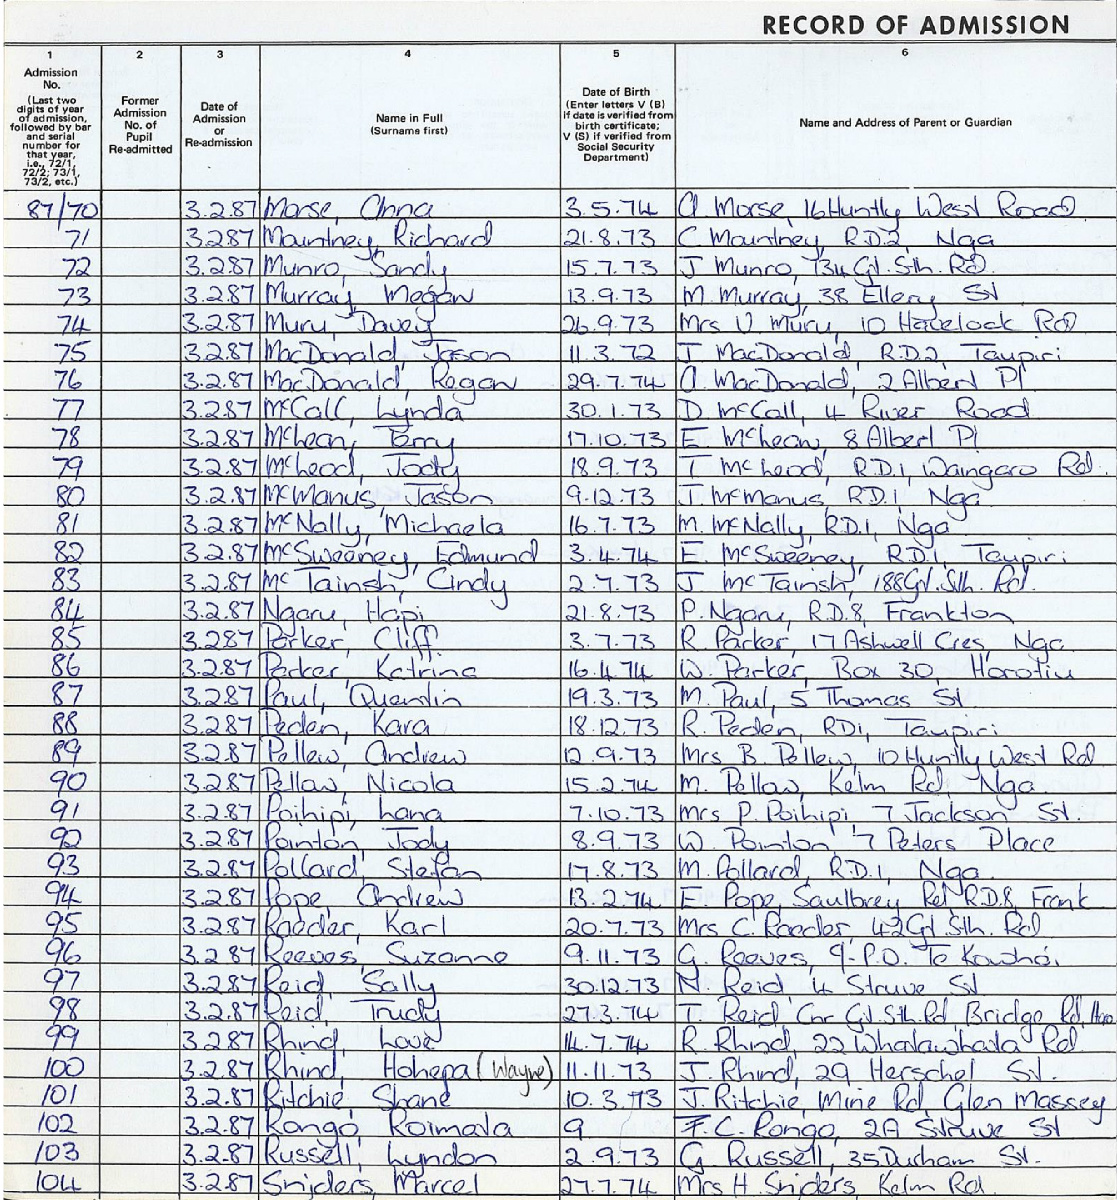 RECORD OF ADMISSION
1 2 3 4 5 6
Admission No. (Last two digits of year of admission, followed by bar and serial number for that year, i.e., 72/1, 72/2; 73/1, 73/2, etc.)
Former Admission No. of Pupil Re-admitted
Date of Admission or Re-admission
Name in Full (Surname first)
Date of Birth (Enter letters V (B) if date is verified from birth certificate; V (S) if verified from Social Security Department)
Name and Address of Parent or Guardian
87/70 3.2.87 Morse, Anna 3.5.74 A. Morse, 16 Huntly West Road
71 3.2.87 Mountney, Richard 21.8.73 C. Mountney, R.D.2, Nga
72 3.2.87 Munro, Sandy 15.7.73 J Munro, 134 Gt. Sth. Rd.
73 3.2.87 Murray Megan 13.9.73 M. Murray, 38 Ellery St
74 3.2.87 Muru, Davey 26.9.73 Mrs V. Muru, 10 Havelock Rd
75 3.2.87 MacDonald, Jason 11.3.72 J. MacDonald, R.D.2, Taupiri
76 3.2.87 MacDonald, Regan 29.7.74 A. MacDonald, 2 Albert Pl
77 3.2.87 McCall, Lynda 30.1.73 D. McCall, 4 River Road
78 3.2.87 McLean, Terry 17.10.73 E McLean, 8 Albert Pl
79 3.2.87 McLeod, Jody 18.9.73 T McLeod, R.D.1, Waingaro Rd.
80 3.2.87 McManus, Jason 9.12.73 J. McManus, R.D.1, Nga
81 3.2.87 McNally, Michaela 16.7.73 M. McNally, R.D.1, Nga
82 3.2.87 McSweeney, Edmund 3.4.74 E. McSweeney, R.D.1, Taupiri
83 3.2.87 McTainsh, Cindy 2.7.73 J McTainsh, 188 Gt. Sth. Rd.
84 3.2.87 Ngaru, Hapi 21.8.73 P. Ngaru, R.D.8, Frankton
85 3.2.87 Parker, Cliff 3.7.73 R. Parker, 17 Ashwell Cres, Nga
86 3.2.87 Parker, Katrina 16.4.74 W. Parker, Box 30, Horotiu
87 3.2.87 Paul, Quentin 19.3.73 M. Paul, 5 Thomas St
88 3.2.87 Peden, Kara 18.12.73 R. Peden, RD1, Taupiri
89 3.2.87 Pellew, Andrew 12.9.73 Mrs B. Pellew, 10 Huntly West Rd
90 3.2.87 Pellow, Nicola 15.2.74 M. Pellow, Kelm Rd Nga
91 3.2.87 Poihipi, Lana 7.10.73 Mrs P. Poihipi 7 Jackson St.
92 3.2.87 Pointon, Jody 8.9.73 W. Pointon, 7 Peters Place
93 3.2.87 Pollard, Stefan 17.8.73 M. Pollard, R.D.1, Nga
94 3.2.87 Pope, Andrew 13.2.74 E. Pope, Saulbrey Rd R.D.8, Frank
95 3.2.87 Raeder, Karl 20.7.73 Mrs C. Raeder, 42 Gt. Sth. Rd
96 3.2.87 Reeves, Suzanne 9.11.73 G. Reeves, 9-P.O. Te Kowhai
97 3.2.87 Reid, Sally 30.12.73 N Reid 4 Struve St
98 3.2.87 Reid, Trudy 27.3.74 T. Reid Cnr Gt. Sth. Rd Bridge Rd,
99 3.2.87 Rhind, Love 14.7.74 R. Rhind, 22 Whatawhata Rd
100 3.2.87 Rhind, Hohepa (Wayne) 11.11.73 J. Rhind, 29 Herschel St.
101 3.2.87 Ritchie, Shane 10.3.73 J. Ritchie, Mine Rd, Glen Massey
102 3.2.87 Rongo, Roimata 9 F.C. Rongo, 2A Struve St
103 3.2.87 Russell, Lyndon 2.9.73 G. Russell, 35 Durham St.
104 3.2.87 Snijders, Marcel 27.7.74 Mrs H. Snijders, Kelm Rd